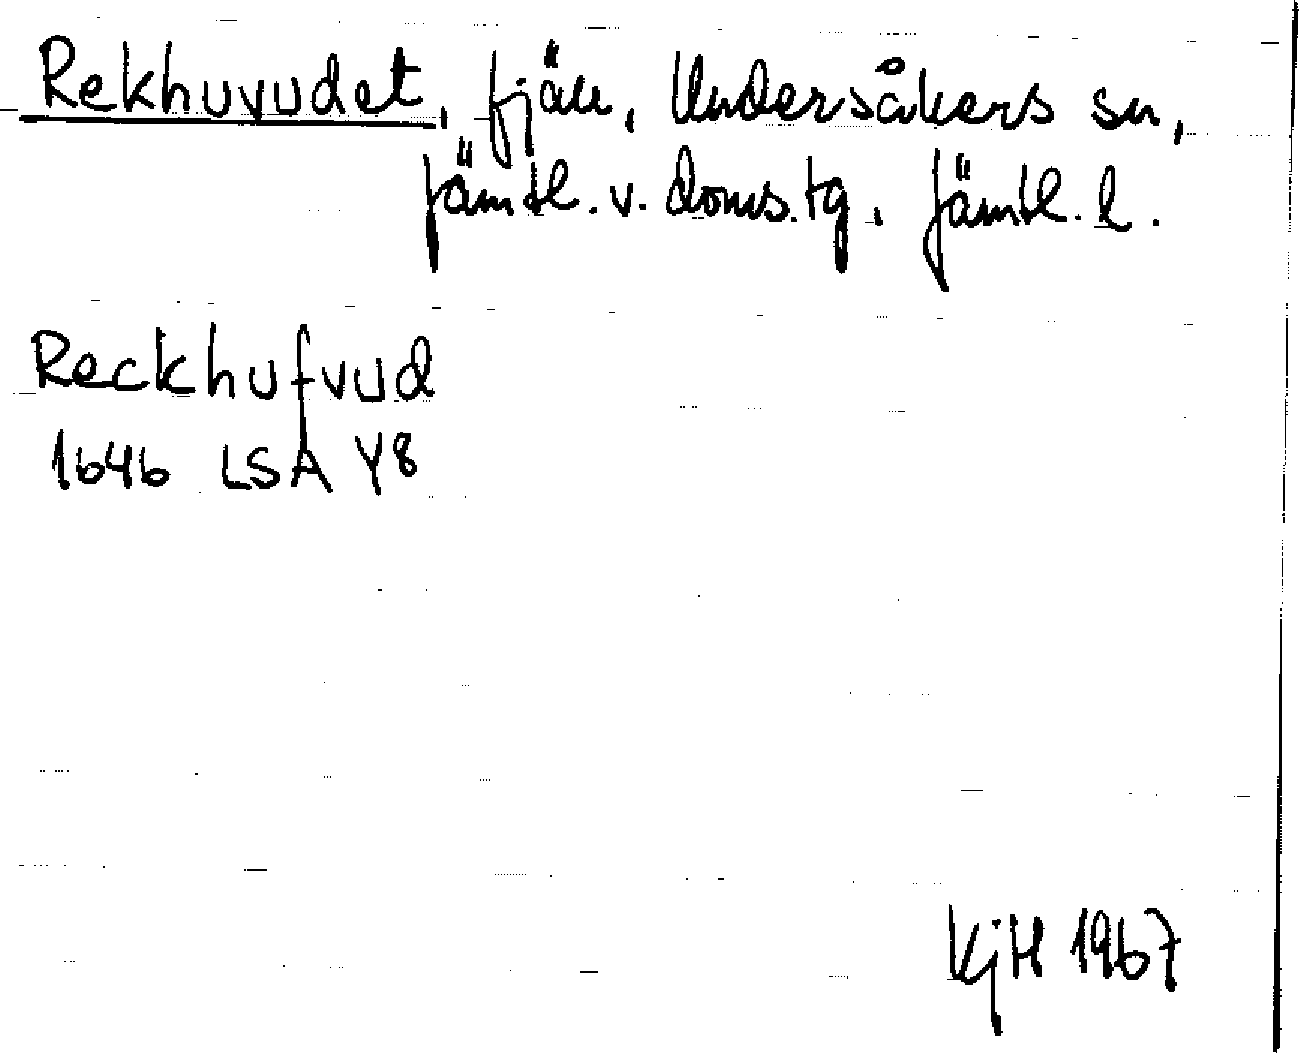 Rekhuvudet, fjäll, Undersåkers sn,
Jämtl. v. doms.tg, Jämtl. l.
Reckhufvud
1646 LSA Y8
KjH 1967